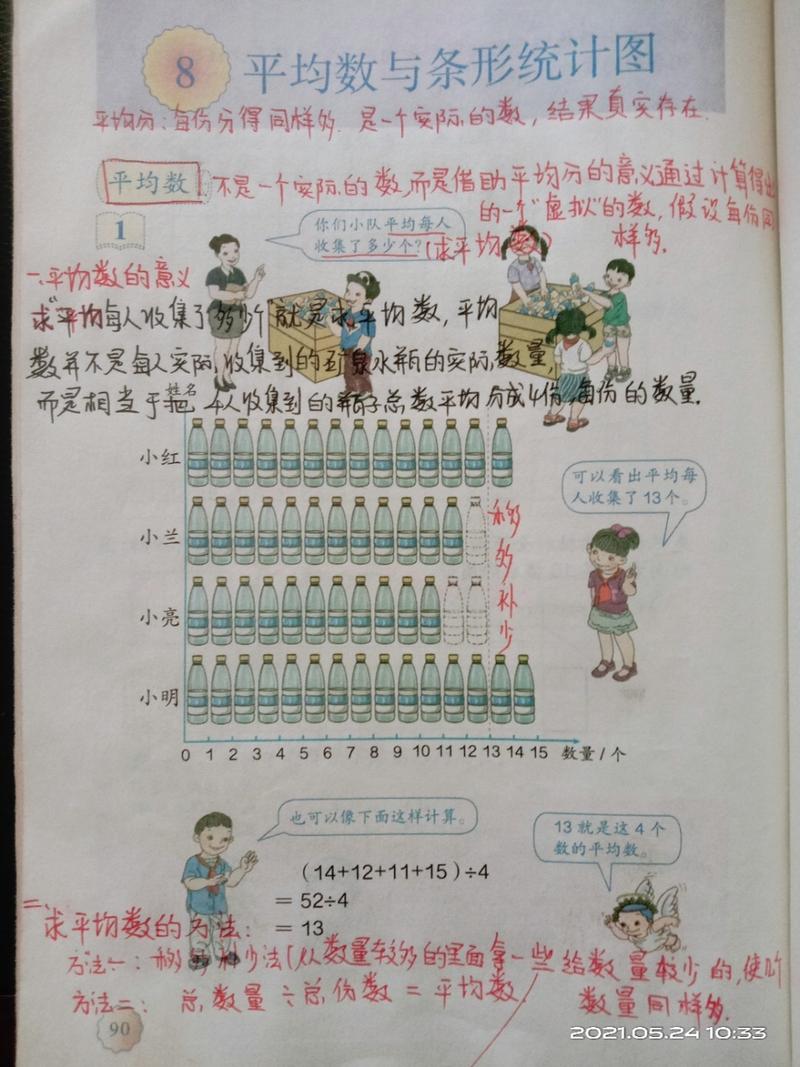 8 平均数与条形统计图
平均分：每份分得同样多. 是一个实际的数，结果真实存在.
平均数 不是一个实际的数,而是借助平均分的意义通过计算得出
的一个"虚拟"的数，假设每份同
样多.
1
你们小队平均每人
收集了多少个?
(求平均数)
一.平均数的意义
求"平均每人收集了多少个"就是求平均数，平均
数并不是每人实际收集到的矿泉水瓶的实际数量，
而是相当于把 4人收集到的瓶子总数平均分成4份,每份的数量.
姓名
小红
小兰
小亮
小明
移多补少
可以看出平均每
人收集了13个。
0 1 2 3 4 5 6 7 8 9 10 11 12 13 14 15 数量/个
也可以像下面这样计算。
(14+12+11+15)÷4
=52÷4
=13
13就是这4个
数的平均数。
二 求平均数的方法:
方法一：移多补少法(从数量较多的里面拿一些给数量较少的,使
数量同样多.
方法二： 总数量÷总份数=平均数.
90
2021.05.24 10:33